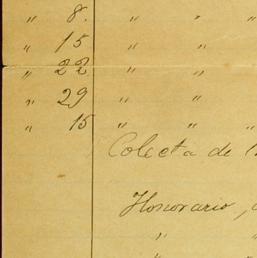 " 8. " " "
" 15 " "
" 22 " "
" 29 " "
" 15 " " "
Colecta de
Honorario,
" "
" "